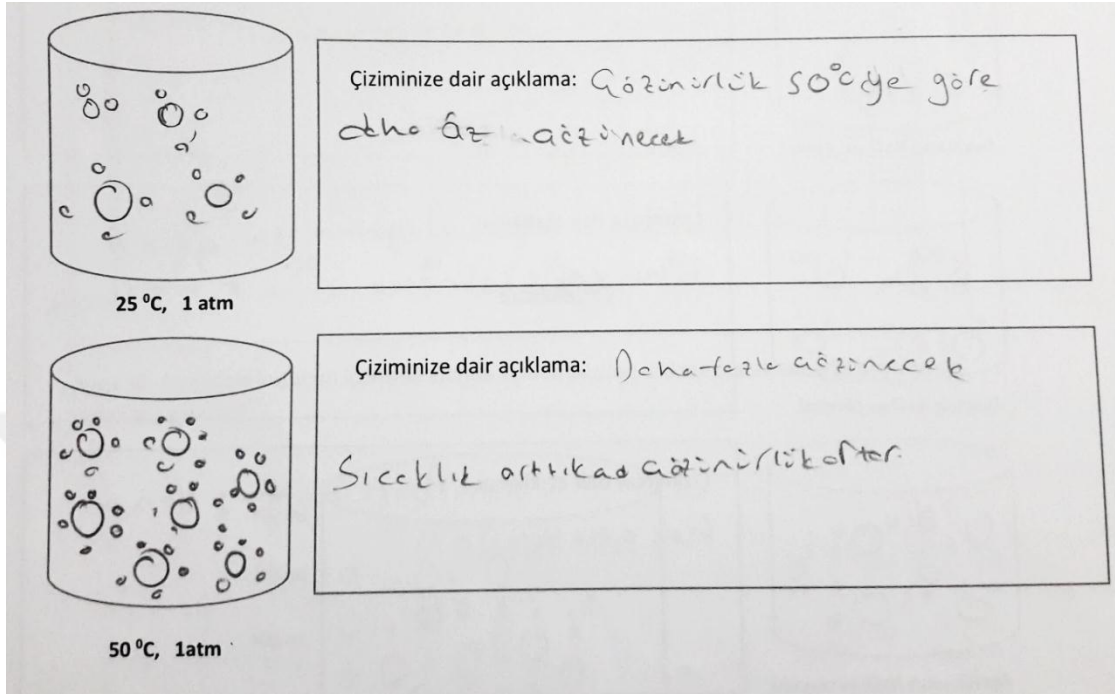 Çiziminize dair açıklama: Çözünürlük 50°C'ye göre
daha az çözünecek
25 ⁰C, 1 atm
Çiziminize dair açıklama: Daha fazla çözünecek
Sıcaklık arttıkça çözünürlük artar.
50 ⁰C, 1atm